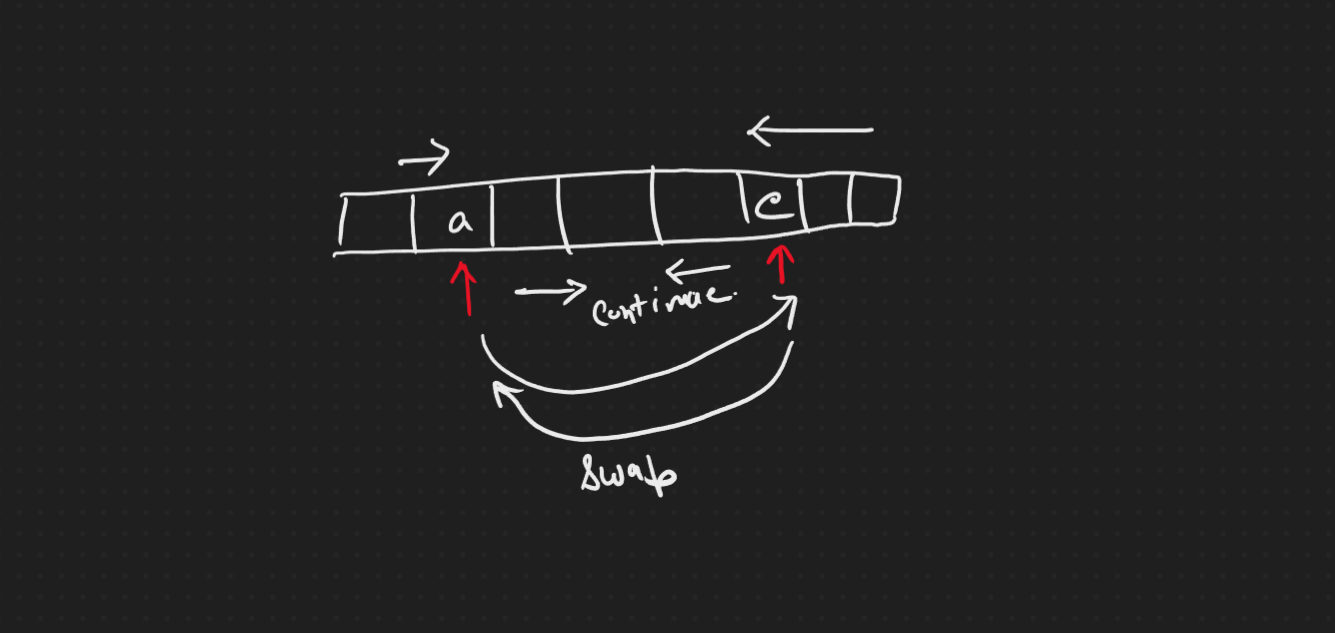 a e
continue.
swap